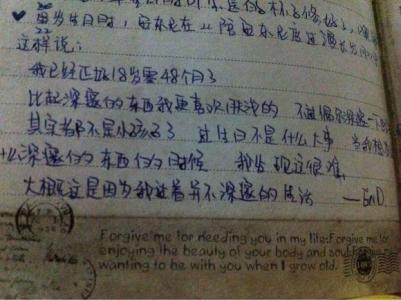 这样说：
我已经正式18岁零48个月了
比起深邃的东西我更喜欢肤浅的 不过偶尔深邃一下
其实都不是小孩子了 过生日不是什么大事 当我想
什么深邃的东西的时候 我发现这很难
大概这是因为我过着并不深邃的生活 ——End
Forgive me for needing you in my life;Forgive me for
enjoying the beauty of your body and soul;Forgive me
wanting to be with you when I grow old.